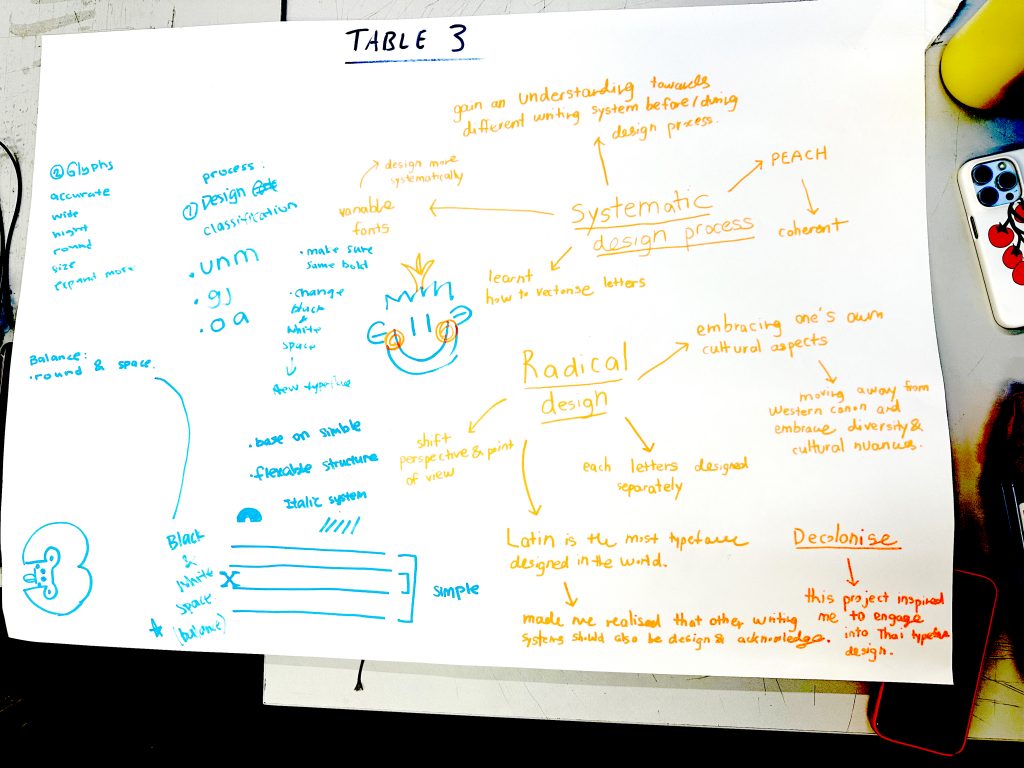 TABLE 3
gain an understanding towards
different writing system before/during
design process.
PEACH
coherent
Systematic
design process
design more
systematically
variable
fonts
learnt
how to vectorise letters
② Glyphs
accurate
wide
hight
round
size
expand more
process:
① Design
classification
• unm
• gj
• oa
• make sure
same bold
• change
black
&
white
space
New typeface
Balance:
• round & space.
• base on simble
• flexable structure
Italic system
Black
&
White
space
(balance)
X
simple
Radical
design
embracing one's own
cultural aspects
moving away from
Western canon and
embrace diversity &
cultural nuances.
shift
perspective & point
of view
each letters designed
separately
Latin is the most typeface
designed in the world.
made me realised that other writing
systems should also be design & acknowledge.
Decolonise
this project inspired
me to engage
into Thai typeface
design.